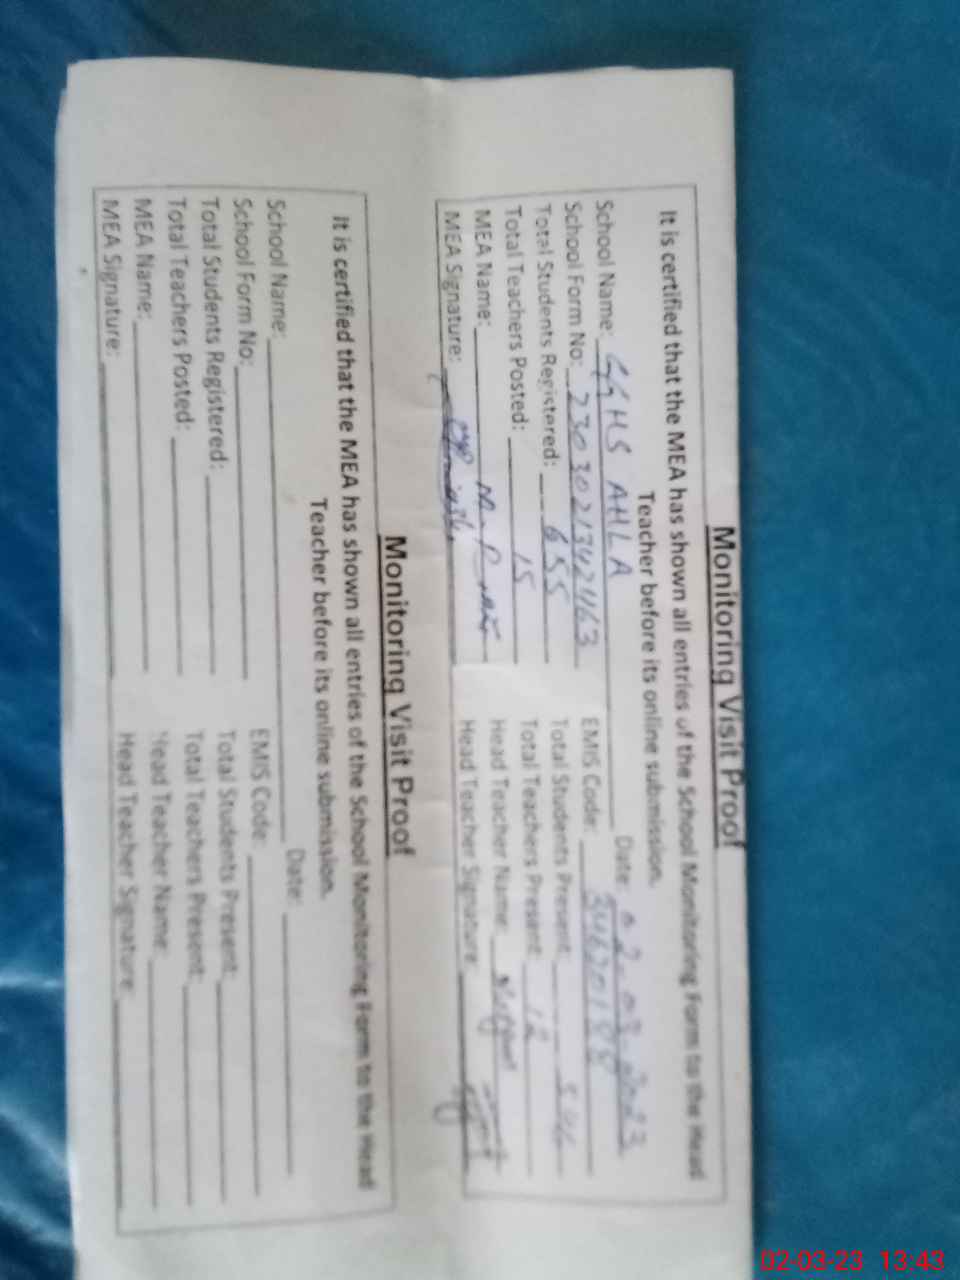 Monitoring Visit Proof
It is certified that the MEA has shown all entries of the School Monitoring Form to the Head
Teacher before its online submission.
School Name: GGHS AHLA Date: 02-03-2023
School Form No: 230302134 2463 EMIS Code: 34620188
Total Students Registered: 655 Total Students Present: 546
Total Teachers Posted: 15 Total Teachers Present: 12
MEA Name: Head Teacher Name:
MEA Signature: Head Teacher Signature:
Monitoring Visit Proof
It is certified that the MEA has shown all entries of the School Monitoring Form to the Head
Teacher before its online submission.
School Name: Date:
School Form No: EMIS Code:
Total Students Registered: Total Students Present:
Total Teachers Posted: Total Teachers Present:
MEA Name: Head Teacher Name:
MEA Signature: Head Teacher Signature:
02-03-23 13:43